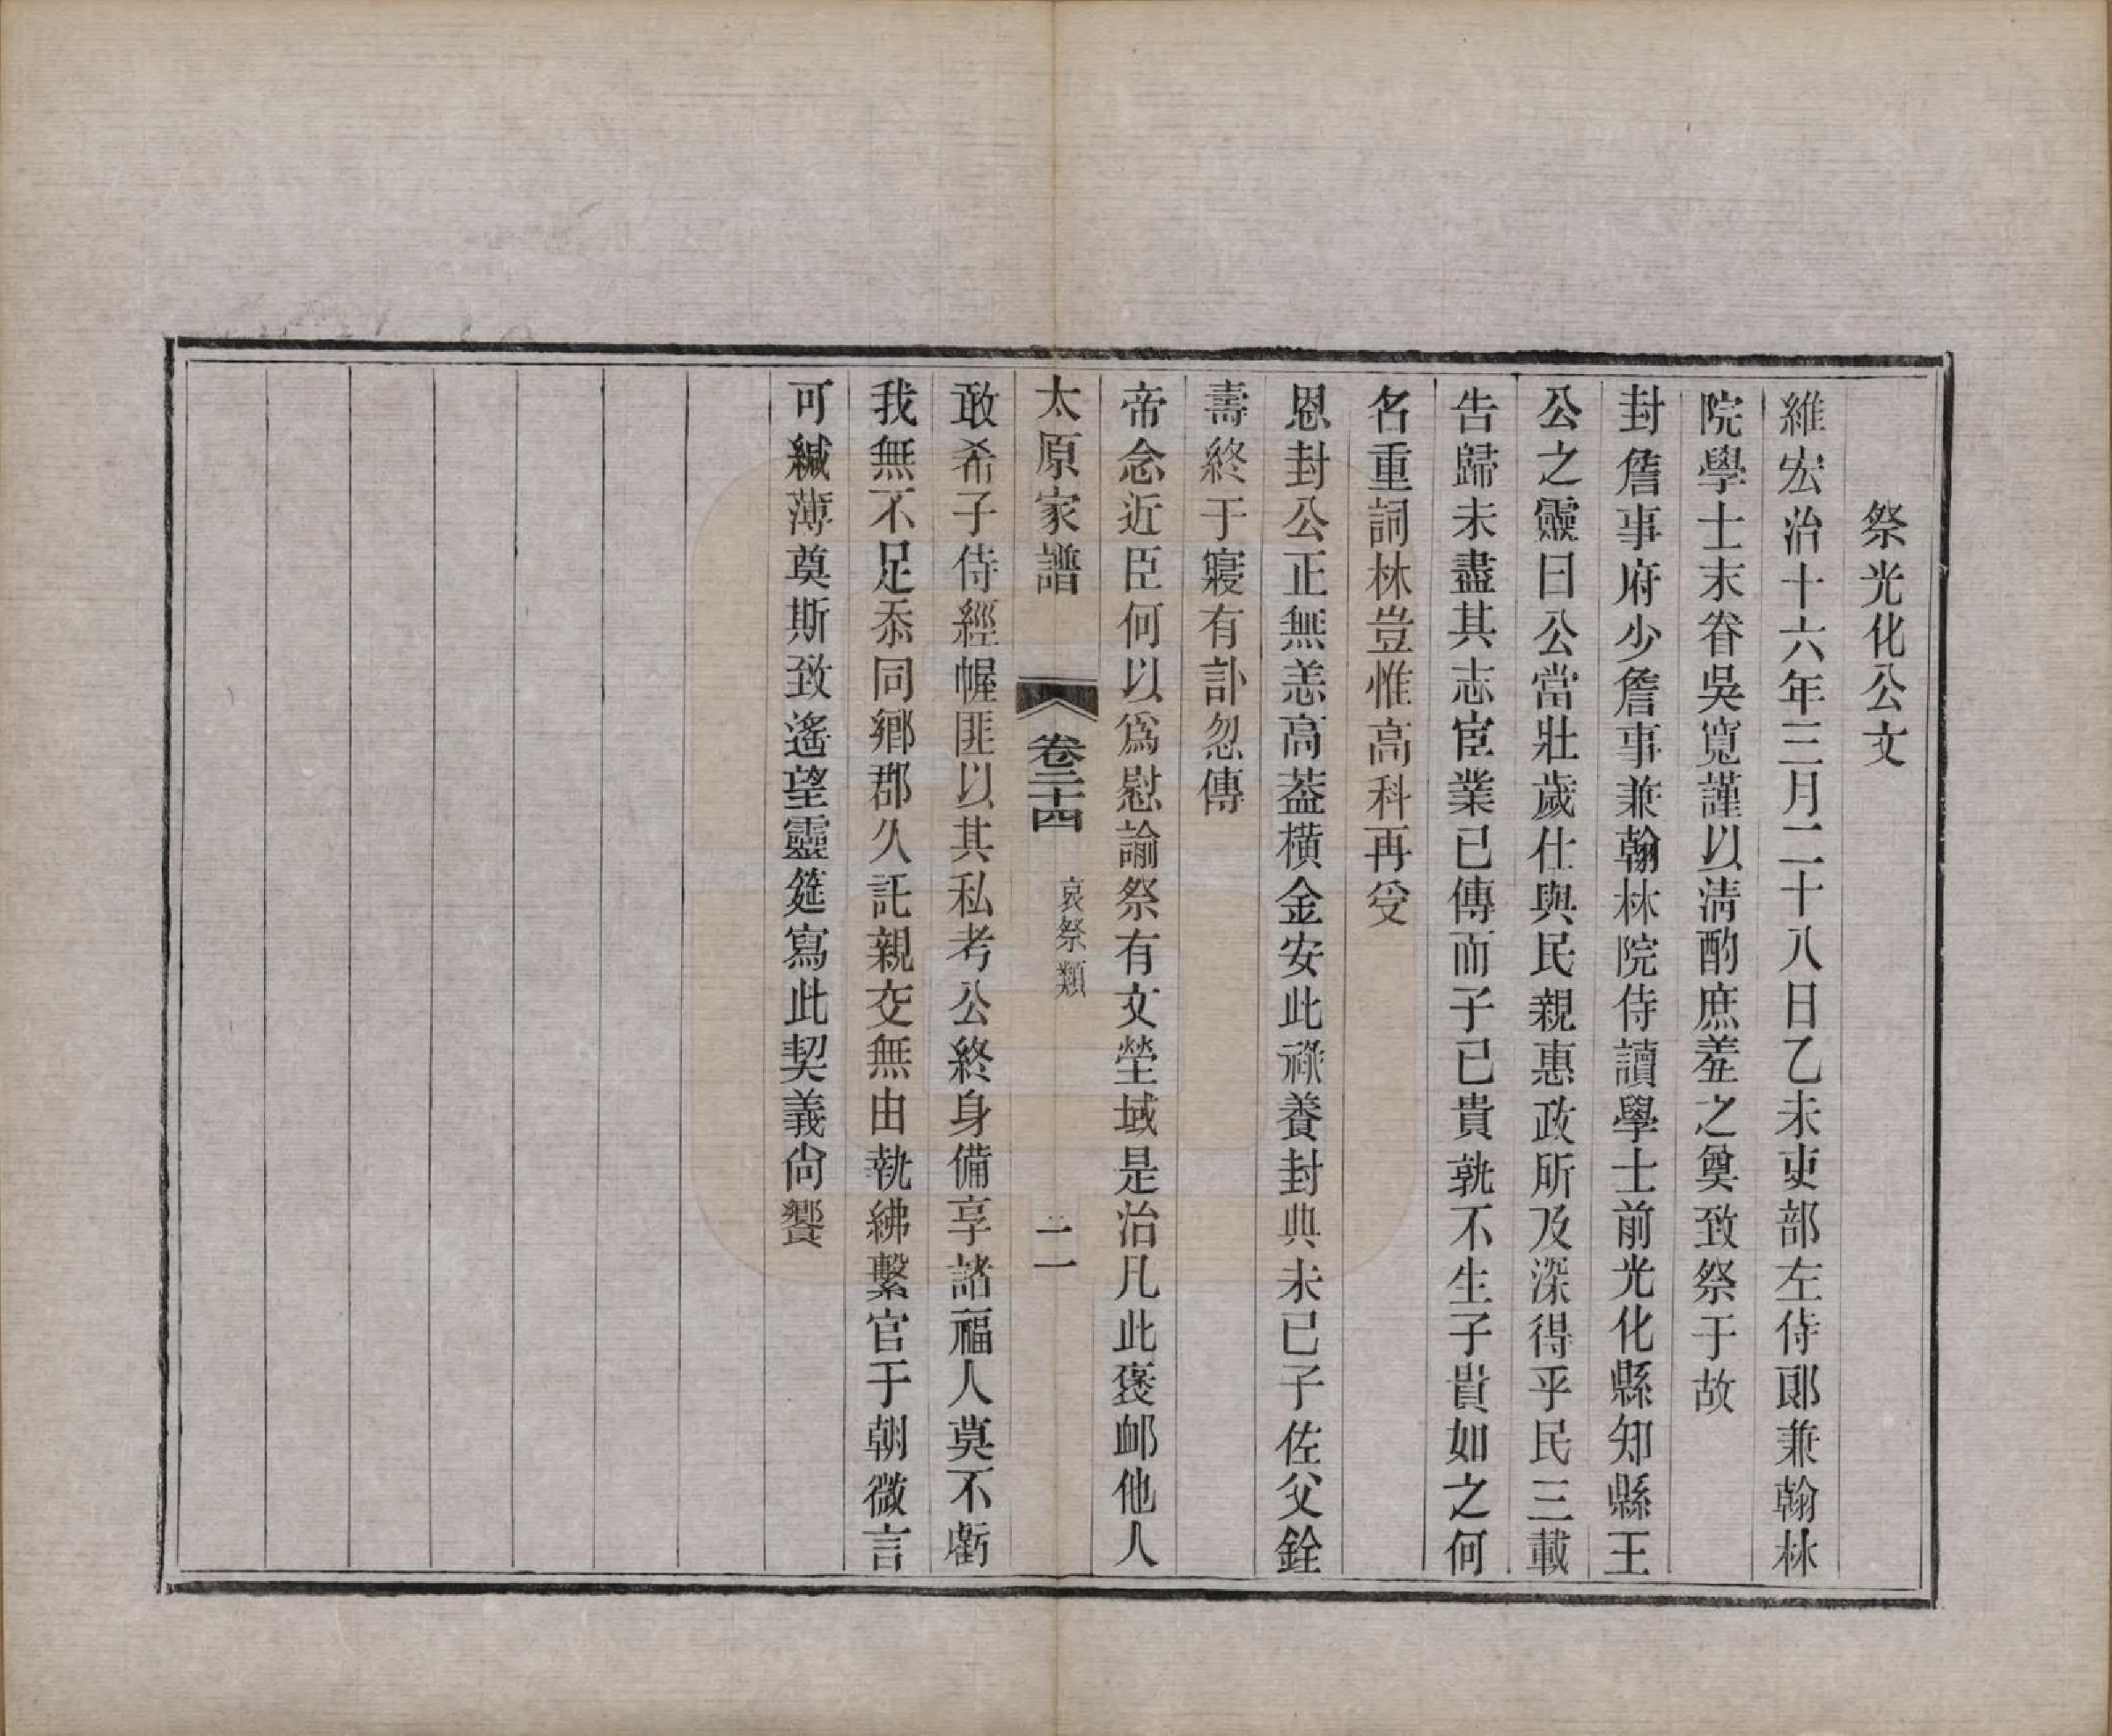 祭光化公文
維宏治十六年三月二十八日乙未吏部左侍郎兼翰林
院學士末眷吳寬謹以清酌庶羞之奠致祭于故
封詹事府少詹事兼翰林院侍讀學士前光化縣知縣王
公之靈曰公當壯歲仕與民親惠政所及深得乎民三載
告歸未盡其志宦業已傳而子已貴孰不生子貴如之何
名重詞林豈惟高科再受
恩封公正無恙高葢橫金安此祿養封典未已子佐父銓
壽終于寢有訃忽傳
帝念近臣何以爲慰諭祭有文塋域是治凡此褒卹他人
太原家譜 卷二十四 哀祭類 二一
敢希子侍經幄匪以其私考公終身備享諸福人莫不虧
我無不足忝同鄉郡久託親交無由執紼繫官于朝微言
可緘薄奠斯致遙望靈筵寫此契義尙饗